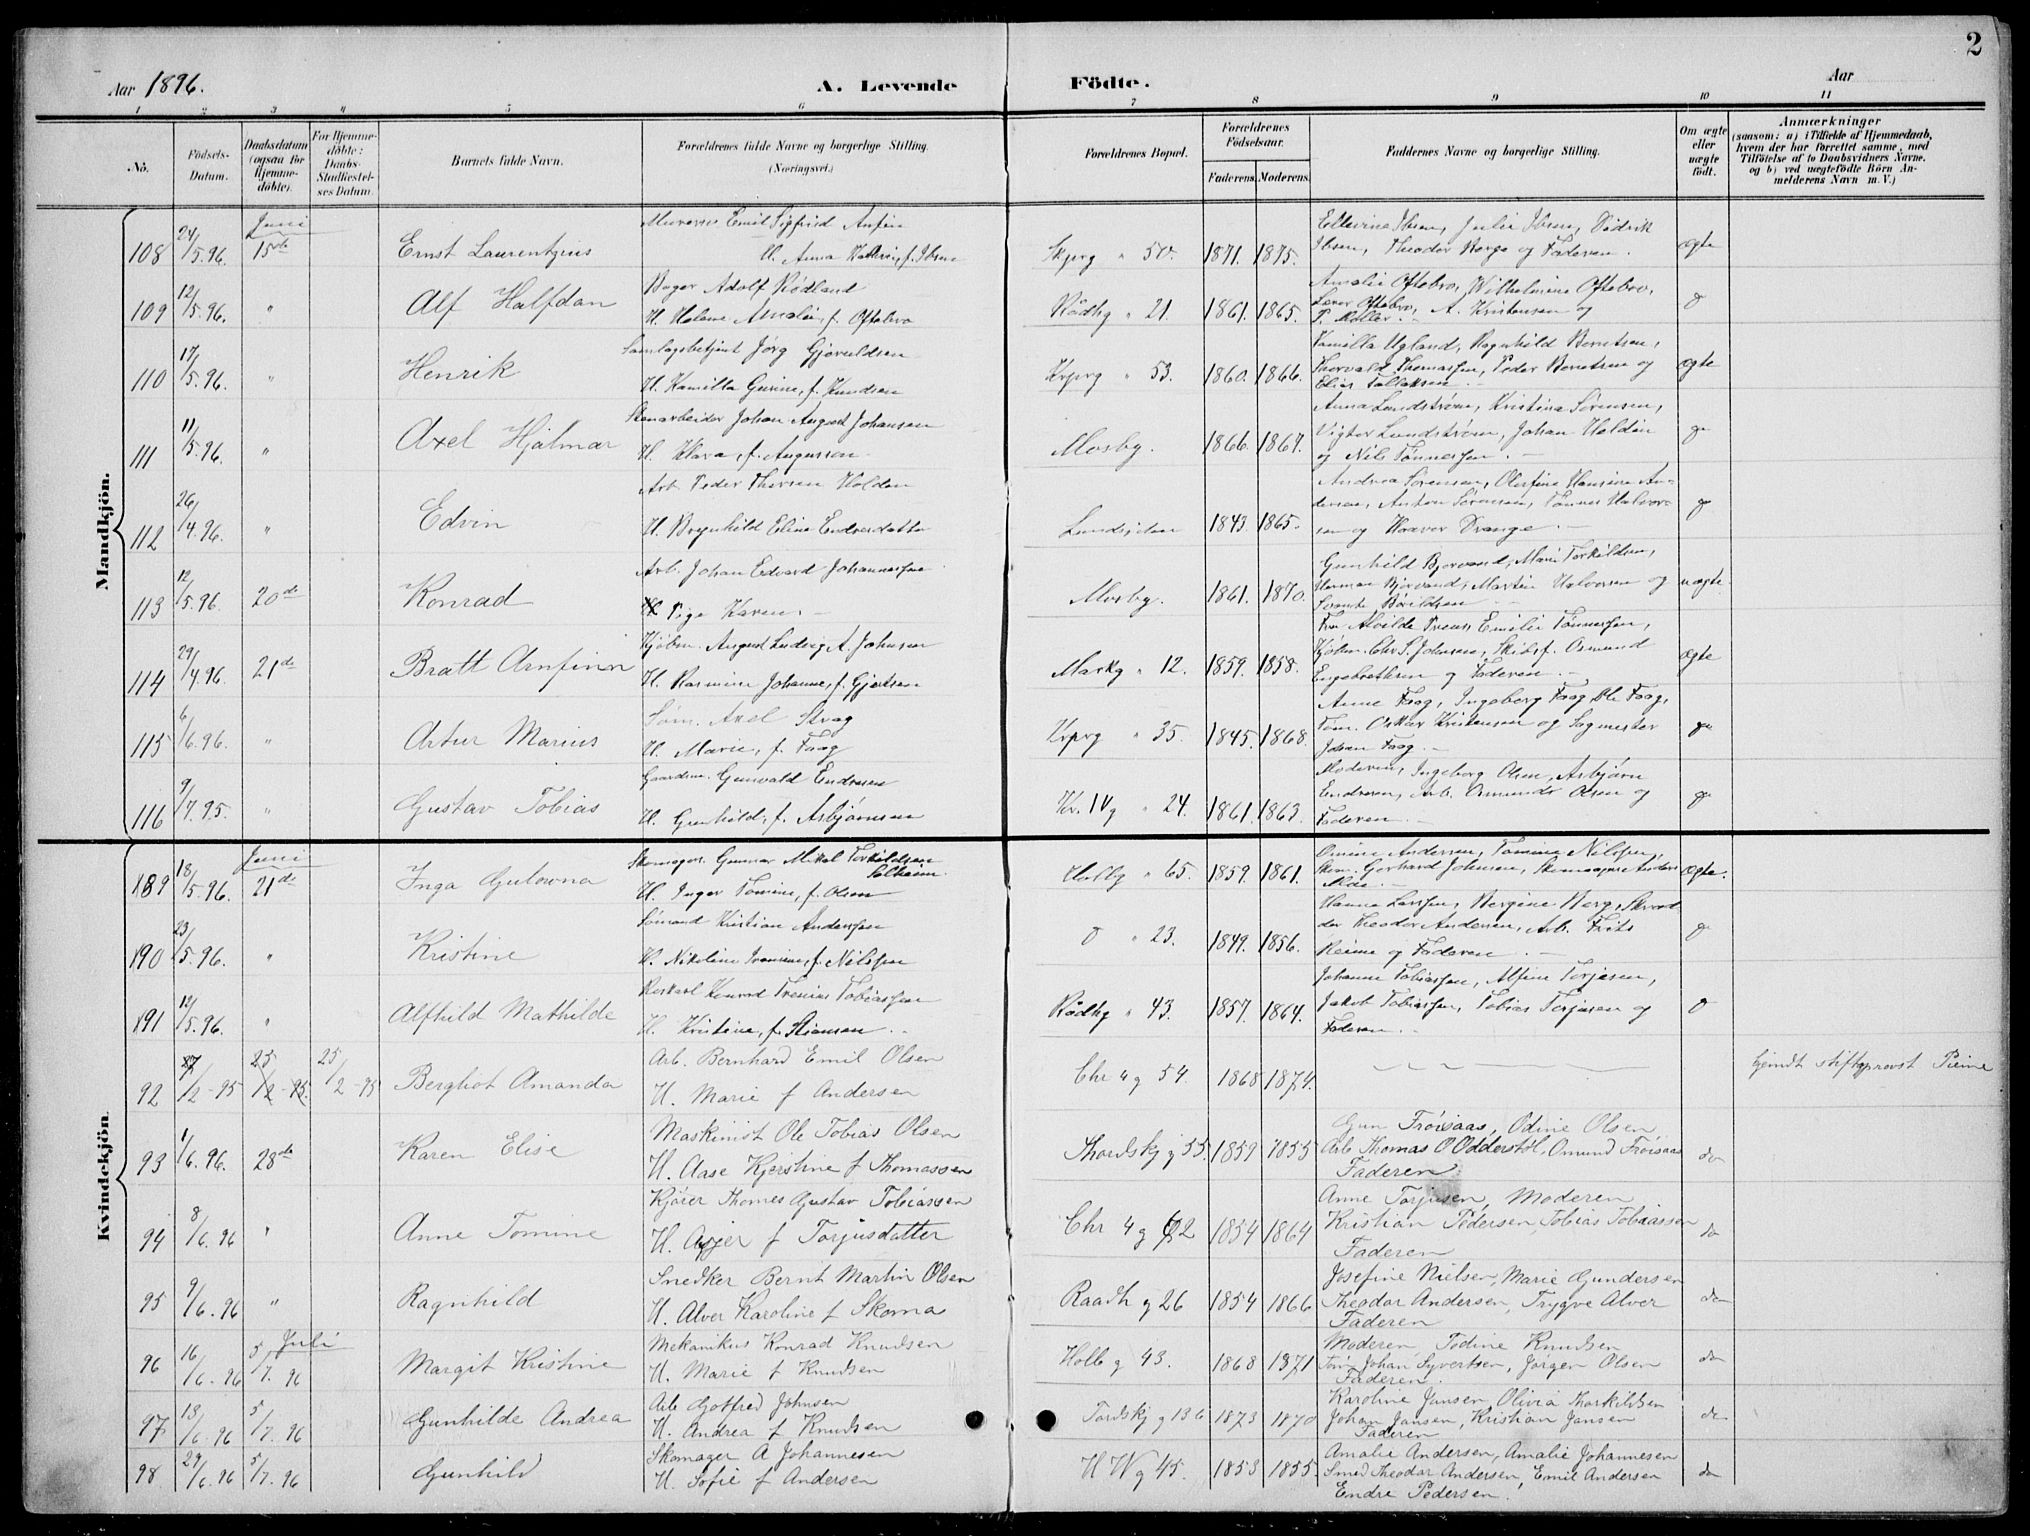 2
Aar 1896. A. Levende Födte. Aar
1 2 3 4 5 6 7 8 9 10 11
No. Födsels-Datum. Daabsdatum (ogsaa for Hjemmedöbte). For Hjemmedöbte: Daabs-Stadfæstelses Datum. Barnets fulde Navn. Forældrenes fulde Navne og borgerlige Stilling. (Næringsvei.) Forældrenes Bopæl. Forældrenes Födselsaar. Faderens. Moderens. Faddernes Navne og borgerlige Stilling. Om ægte eller uægte födt. Anmærkninger (saasom: a) i Tilfælde af Hjemmedaab, hvem der har forrettet samme, med Tilföielse af to Daabsvidners Navne. og b) ved uægtefödte Börn Anmelderens Navn m. V.)
Mandkjön.
Juni
108 24/5.96. 15de Ernst Laurentzius Emil Sigfrid
H. Anna f. Ibsen 50. 1871. 1875. Ibsen, Theodor Berge og Faderen. ægte
109 12/5.96. " Alf Halfdan Bager Adolf Rødland
H. Helene Amalie, f. Oftebro Rådhg " 21. 1861. 1865. Amalie Oftebro, Wilhelmine Oftebro,
Lærer Oftebro, A. Kristensen og
110 17/5.96. " Henrik Samlagsbetjent Jørg Gjeruldsen
H. Kamilla Gurine, f. Knudsen " 53. 1860. 1866. Kamilla Ugland, Ragnhild Berntsen,
Thorvald Thomassen, Peder Berntsen og
Elias Tallaksen ægte
111 11/5.96. " Axel Hjalmar Stenarbeider Johan August Johansen
H. Klara, f. Mosby. 1866. 1867. Anna Lundstrøm, Kristine Sørensen,
Vigtor Lundstrøm, Johan Holdén
og Nils Tønnessen.
112 26/4.96. " Edvin Arb. Peder Holdén
H. Eline 1843. 1865. Andrea Sørensen, Hansine An-
dersen, Anton Sørensen, Tønnes Halvor-
sen og
113 12/5.96. 20de Konrad Arb. Johan Edvard Johannessen
Pige Karen. Mosby. 1861. 1870. Gunhild Bjorvand, Marie Torkildsen,
Herman Bjorvand, Martin Halvorsen og uægte
114 29/4.96 21de Bratt Arnfinn Kjøbm. August Ludvig A. Johnsen
H. Rasmine Johanne, f. Gjertsen Markg " 12. 1859. 1858. Fru Alvilde Emilie Tønnessen,
Kjøbm. Chr. S. Johnsen, Skibsf. Osmund
Engebrethsen og Faderen. ægte
115 6/6.96. " Artur Marius Søm. Axel
H. Marie, f. Faag " 35. 1845. 1868. Anne Faag, Ingeborg Faag, Ole Faag,
Tøm. Oskar Kristensen og Sagmester
Johan Faag.
116 9/7.95. " Gustav Tobias Gaardm. Gunvald Endresen
H. Gunhild, f. Asbjørnsen " 24. 1861. 1863. Moderen, Ingeborg Olsen, Asbjørn
Endresen, Arb. Osmund Olsen og
Faderen.
Kvindekjön
Juni
189 18/5.96. 21de Inga Gulowna Skomager. Gunnar Mikal Torkildsen
Solheim.
H. Inger Tomine, f. Olsen Holbg " 65. 1859. 1861. Omine Andersen, Tomine Nilssen,
Gerhard Johnsen, Skomager Anders
Moe. ægte.
190 23/5.96. " Kristine Sømand Kristian Anderssen
H. Nikoline, f. Nilssen " 23. 1849. 1856. Hanna Larssen, Bergine Berg, Skræd-
der Theodor Andersen, Arb. Frits
Reime og Faderen.
191 12/5.96. " Alfhild Mathilde Konrad Tobiassen
H. Kristine, f. Rådhg " 43. 1857. 1864. Johanne Tobiassen, Alfine Terjesen,
Jakob Tobiassen, Tobias Terjesen og
Faderen.
92 /2-95 25/2-95. 25/2-95 Bergliot Amanda Arb. Bernhard Emil Olsen
H. Marie f Andersen Chr 4 g 54. 1868 1874. stiftsprovst
93 1/6.96. 28de Karen Elise Maskinist Ole Tobias Olsen
H. Aase Kjerstine f Thomassen Thordskj g 55. 1859 1855 Gun Frøisaas, Odine Olsen
Arb Thomas O Odderstøl, Omund Frøisaas
Faderen do
94 8/6.96 " Anne Tomine Kjører Thomes Gustav Tobiassen
H. f Torjusdatter Chr 4 g 1854 1864 Anne Torjusen, Moderen
Kristian Pedersen, Tobias Tobiassen
Faderen do
95 9/6.96 " Ragnhild Snedker Bernt Martin Olsen
H. Alver Karoline f Skoma Raadh g 26 1854 1866 Josefine Nielsen, Marie Gundersen
Theodor Andersen, Trygve Alver
Faderen do
Juli
96 16/6.96 5/7.96 Margit Kristine Mekanikus Konrad Knudsen
H. Marie f Knudsen Holb g 43. 1868 1871 Moderen, Todine Knudsen
Tøm Johan Syvertsen, Jørgen Olsen
Faderen. do
97 13/6.96 5/7.96 Gunhilde Andrea Arb Gotfred Johnsen
H. Andrea f Knudsen Tordskj g 136 1873 1870 Karoline Jansen, Olivia Thorkildsen
Johan Jansen, Kristian Jansen
Faderen do
98 29/6.96 5/7.96 Gunhild Skomager A Johannesen
H. Sofie f Andersen g 45. 1853 1855 Amalie Andersen, Amalie Johannesen
Smed Theodor Andersen, Emil Andersen
Endre Pedersen. do